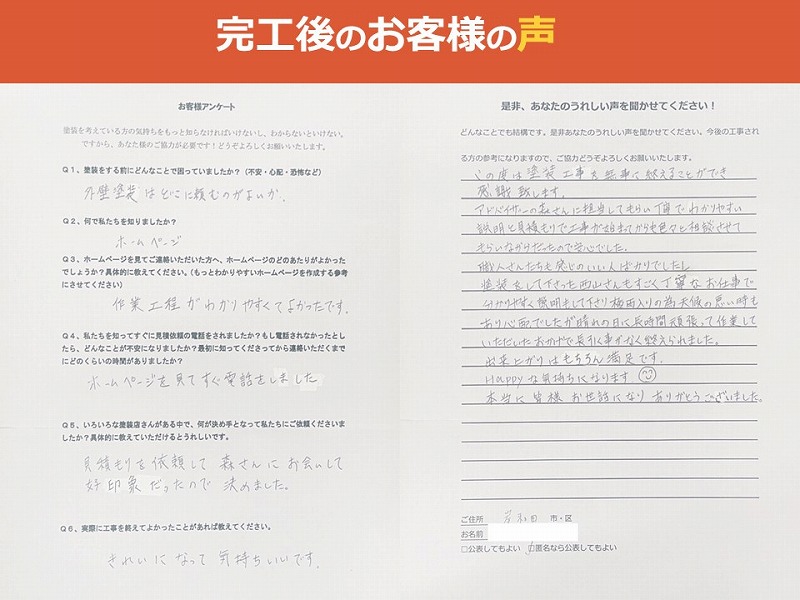 完工後のお客様の声
お客様アンケート
塗装を考えている方の気持ちをもっと知らなければいけないし、わからないといけない。
ですから、あなた様のご協力が必要です！どうぞよろしくお願いいたします。
Q1、塗装をする前にどんなことで困っていましたか？（不安・心配・恐怖など）
外壁塗装はどこに頼むのがよいか。
Q2、何で私たちを知りましたか？
ホームページ
Q3、ホームページを見てご連絡いただいた方へ、ホームページのどのあたりがよかった
でしょうか？具体的に教えてください。（もっとわかりやすいホームページを作成する参考
にさせてください）
作業工程がわかりやすくてよかったです。
Q4、私たちを知ってすぐに見積依頼の電話をされましたか？もし電話されなかったとし
たら、どんなことが不安になりましたか？最初に知ってくださってから連絡いただくまで
にどのくらいの時間がありましたか？
ホームページを見てすぐ電話をしました
Q5、いろいろな塗装店さんがある中で、何が決め手となって私たちにご依頼くださいま
したか？具体的に教えていただけるとうれしいです。
見積もりを依頼して 森さんにお会いして
好印象だったので 決めました。
Q6、実際に工事を終えてよかったことがあれば教えてください。
きれいになって気持ちいいです。
是非、あなたのうれしい声を聞かせてください！
どんなことでも結構です。是非あなたのうれしい声を聞かせてください。今後の工事され
る方の参考になりますので、ご協力どうぞよろしくお願いいたします。
この度は塗装工事を無事に終えることができ
感謝致します。
アドバイザーの森さんに担当してもらい丁寧でわかりやすい
説明と見積もりで工事が始まってからも色々と相談させて
もらいながらだったので安心でした。
職人さんたちも感じのいい人ばかりでしたし
塗装をして下さった西山さんもすごく丁寧なお仕事で
分かりやすく説明もして下さり梅雨入りの為天候の悪い時も
あり心配でしたが晴れの日に長時間頑張って作業して
いただいたおかげで長引く事がなく終えられました。
出来上がりはもちろん満足です。
Happyな気持ちになります
本当に皆様お世話になりありがとうございました。
ご住所 岸和田 市・区
お名前
□公表してもよい □匿名なら公表してもよい